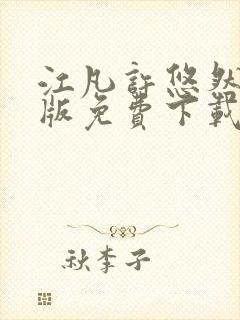 江凡許悠然
版免費下載
秋李子